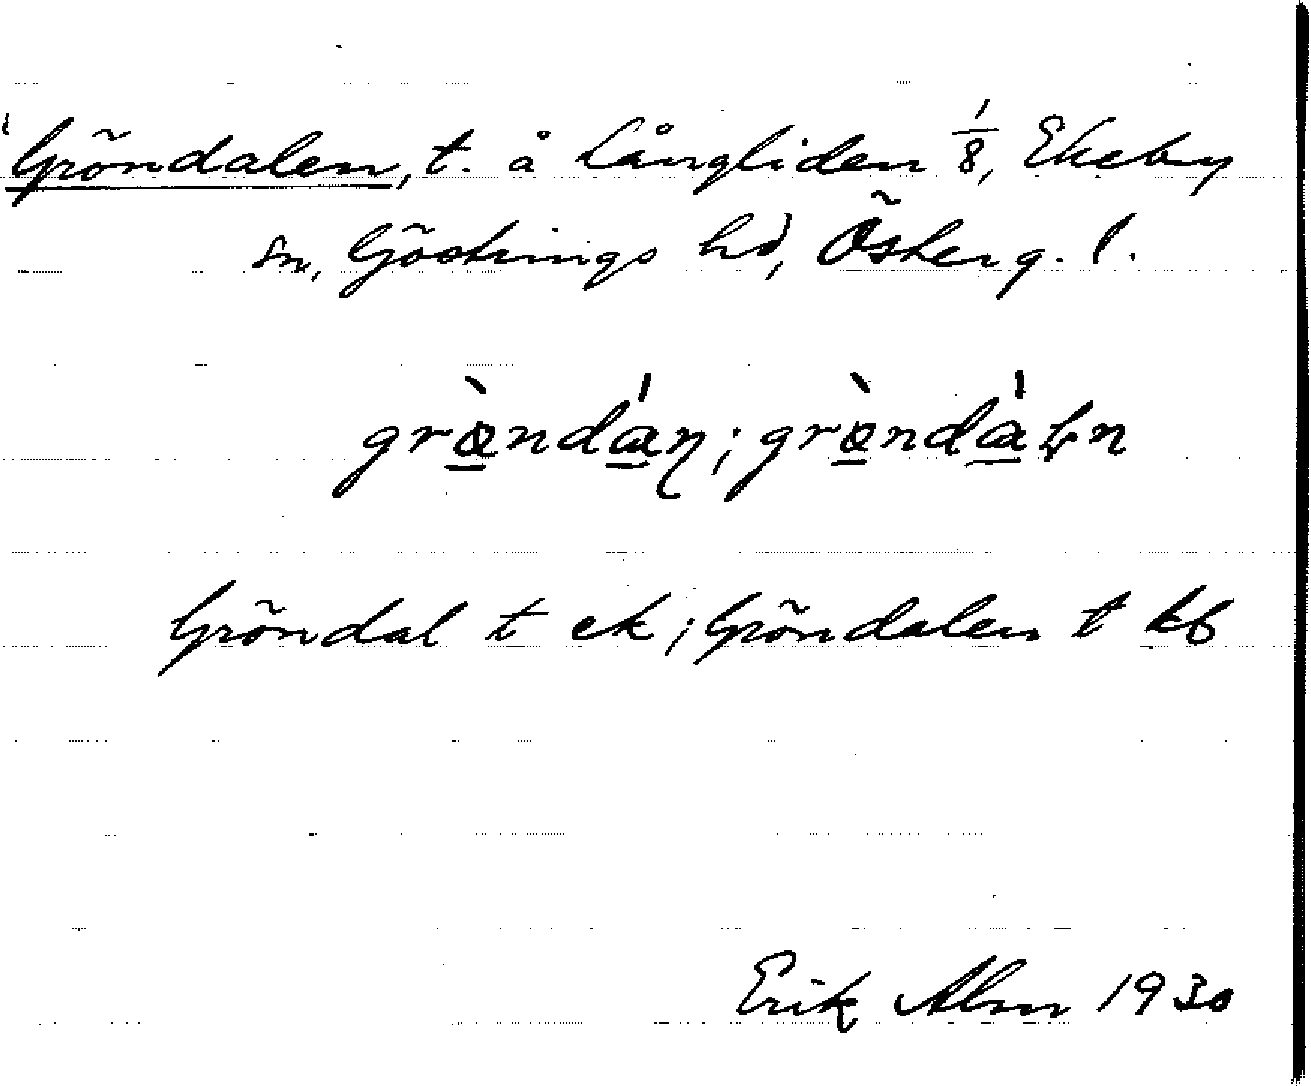 Gröndalen, t. å Långliden 1/8, Ekeby
sn, Göstrings hd, Österg. l.
grö̀ndáṇ; grö̀ndáɫn
Gröndal t ek; Gröndalen t kb
Erik Alm 1930